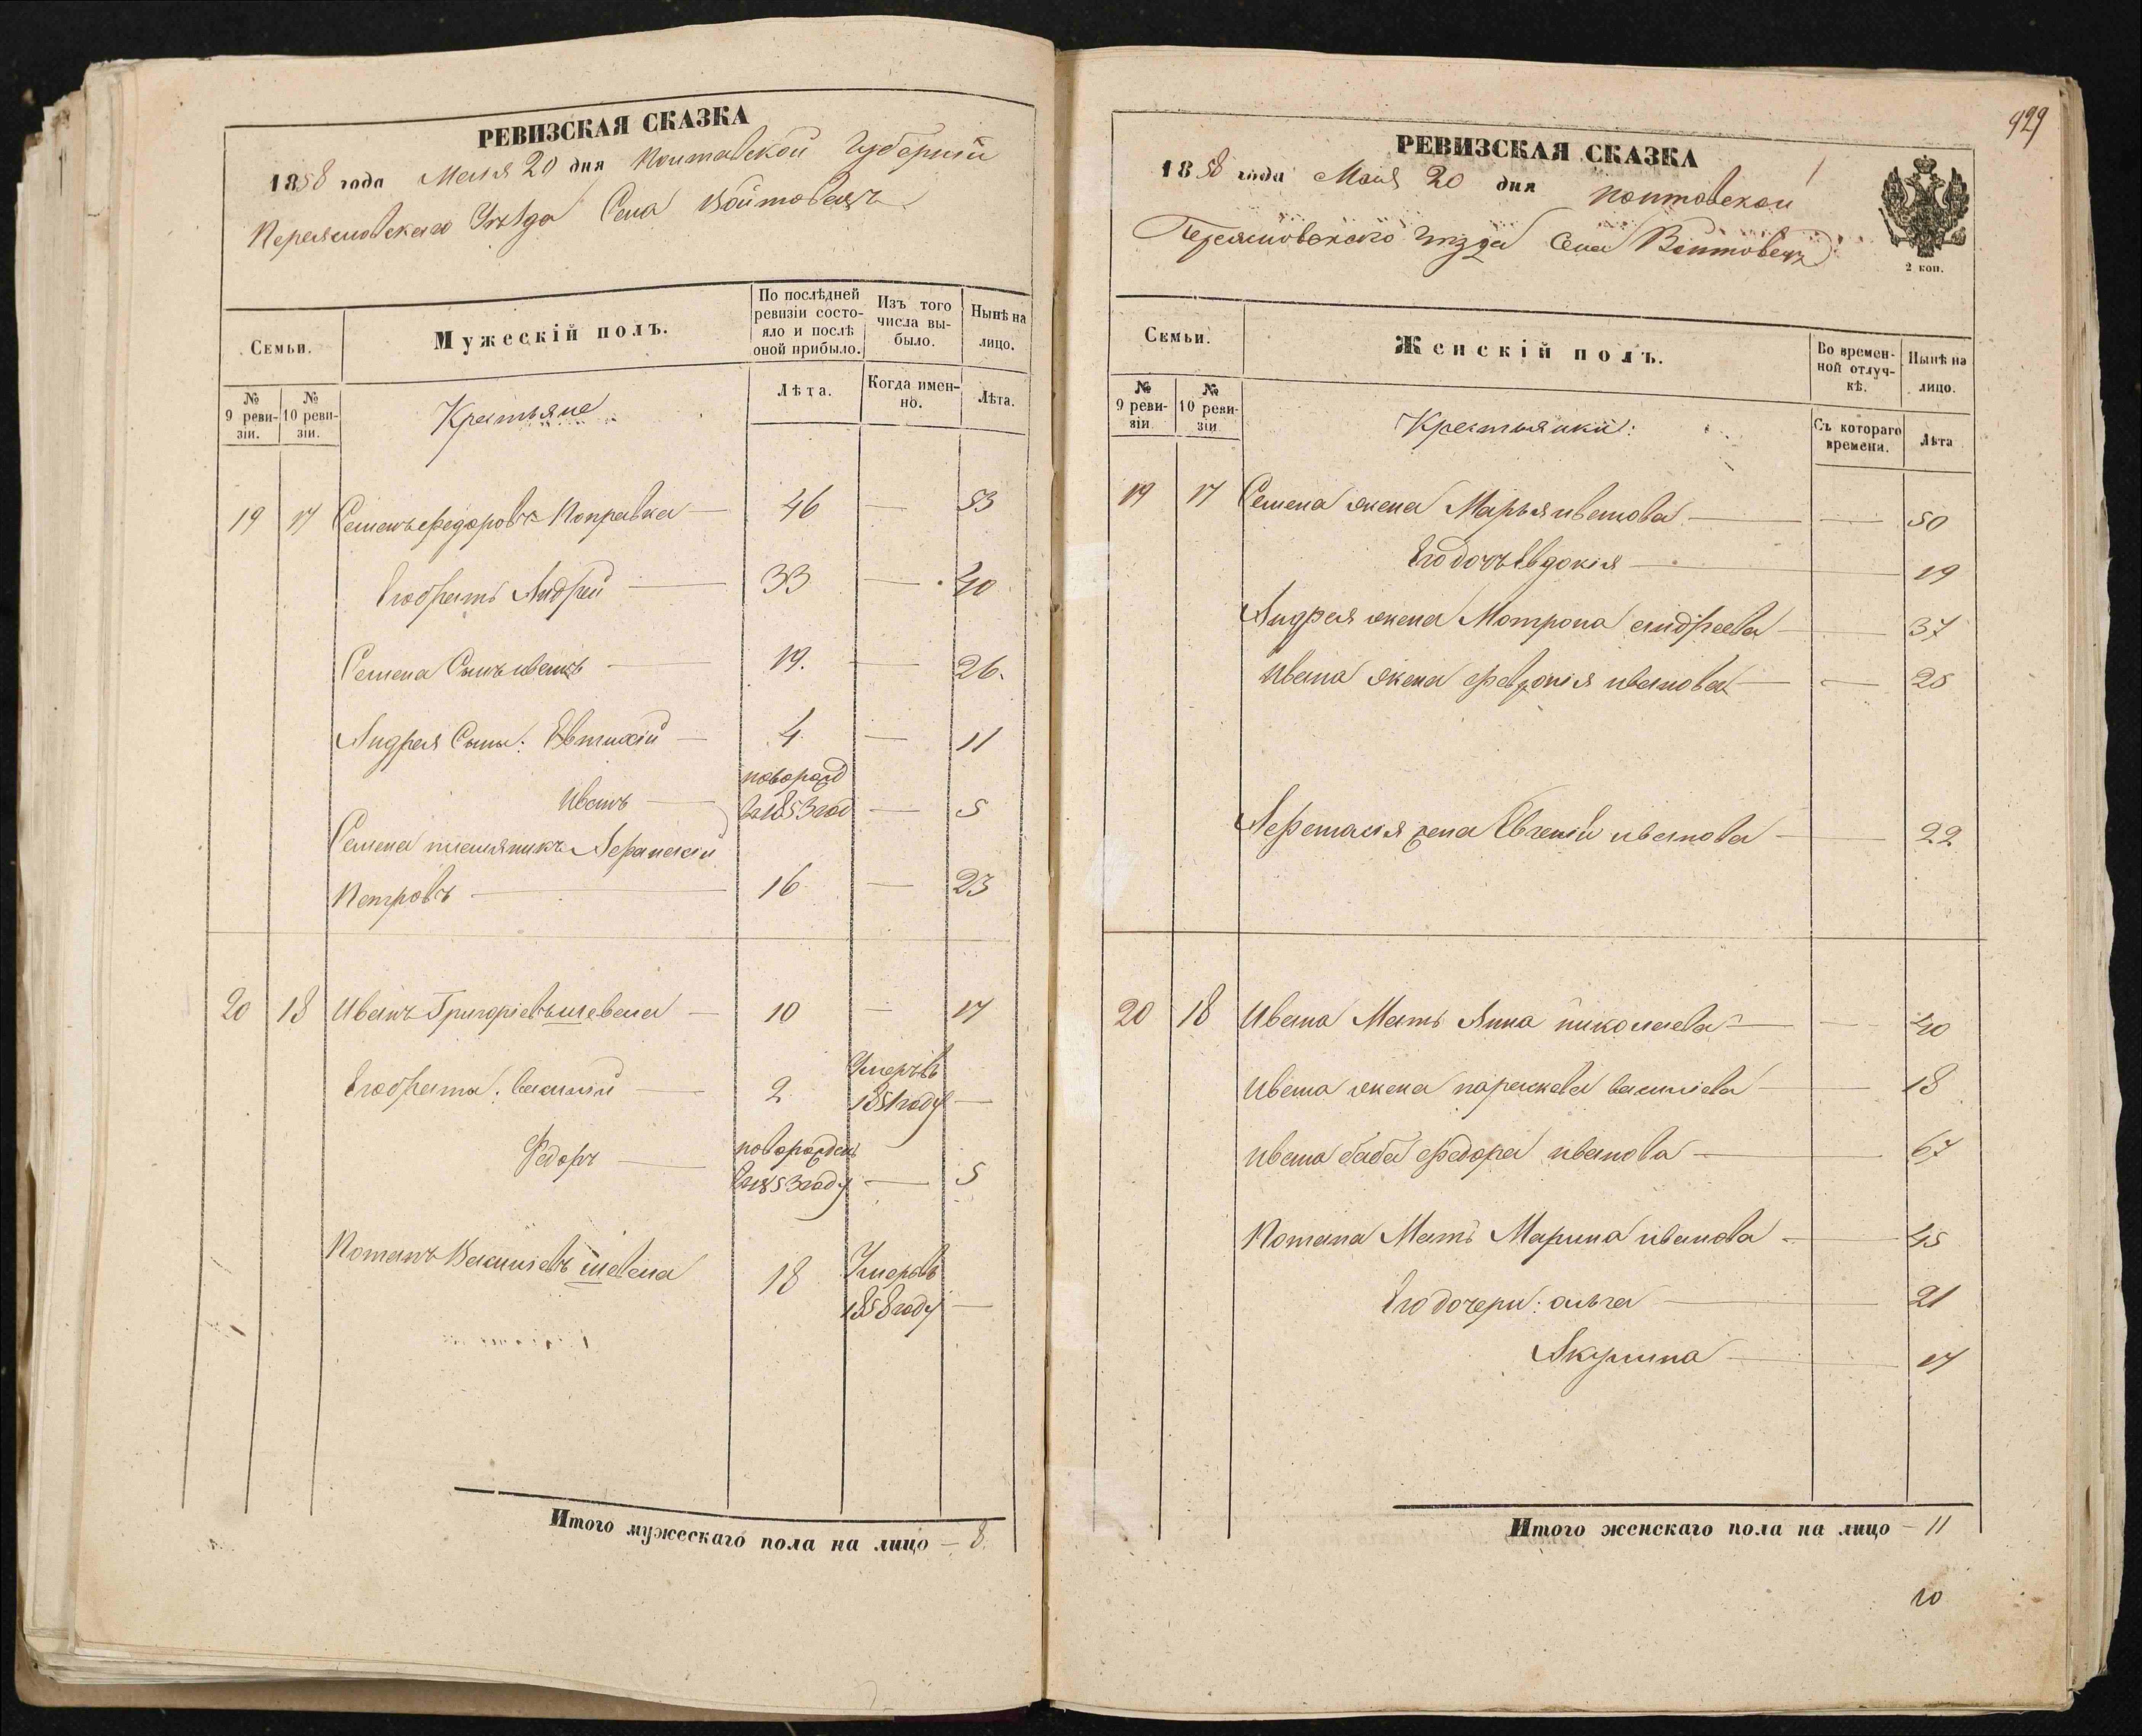 РЕВИЗСКАЯ СКАЗКА
1858 года Мая 20 дня Полтавской Губерніи
Переяславскаго Уѣзда Села Войтовецъ
Семьи.
Мужескій полъ.
По послѣдней ревизіи состояло и послѣ оной прибыло.
Изъ того числа выбыло.
Нынѣ на лицо.
№ 9 ревизіи.
№ 10 ревизіи.
Крестьяне
Лѣта.
Когда именно.
Лѣта.
19 17 Семенъ Федоровъ Поправка — 46 — 53
Его братъ Андрей — 33 — 40
Семена Сынъ иванъ — 19. — 26.
Андрея Сыны: Евтихій — 4 — 11
Иванъ — новорожд
въ 1853 год — 5
Семена племяникъ Афанасій
Петровъ — 16 — 23
20 18 Иванъ Григоріевъ шевела — 10 — 17
Его братья: василій — 2 Умеръ въ
1851 году —
Федоръ — новорожден
въ 1853 году — 5
Потапъ Василіевъ шевела 18 Умеръ въ
1858 году —
Итого мужескаго пола на лицо — 8.
929
РЕВИЗСКАЯ СКАЗКА
1858 года Мая 20 дня полтавской
Переяславскаго уѣзда Села Войтовецъ
2 коп.
Семьи.
Женскій полъ.
Во временной отлучкѣ.
Нынѣ на лицо.
№ 9 ревизіи
№ 10 ревизіи
Крестьянки:
Съ котораго времени.
Лѣта
19 17 Семена жена Марья иванова — — 50
Его дочъ Евдокія — 19
Андрея жена Мотрона андреева — 37
Ивана жена февронія иванова — — 25
Афанасія жена Евгенія иванова — 22
20 18 Ивана Мать Анна николаева — — 40
Ивана жена параскева василіева — 18
Ивана баба федора иванова — 67
Потапа Мать Марина иванова — 45
Его дочери: ольга — 21
Акулина — 17
Итого женскаго пола на лицо — 11
10